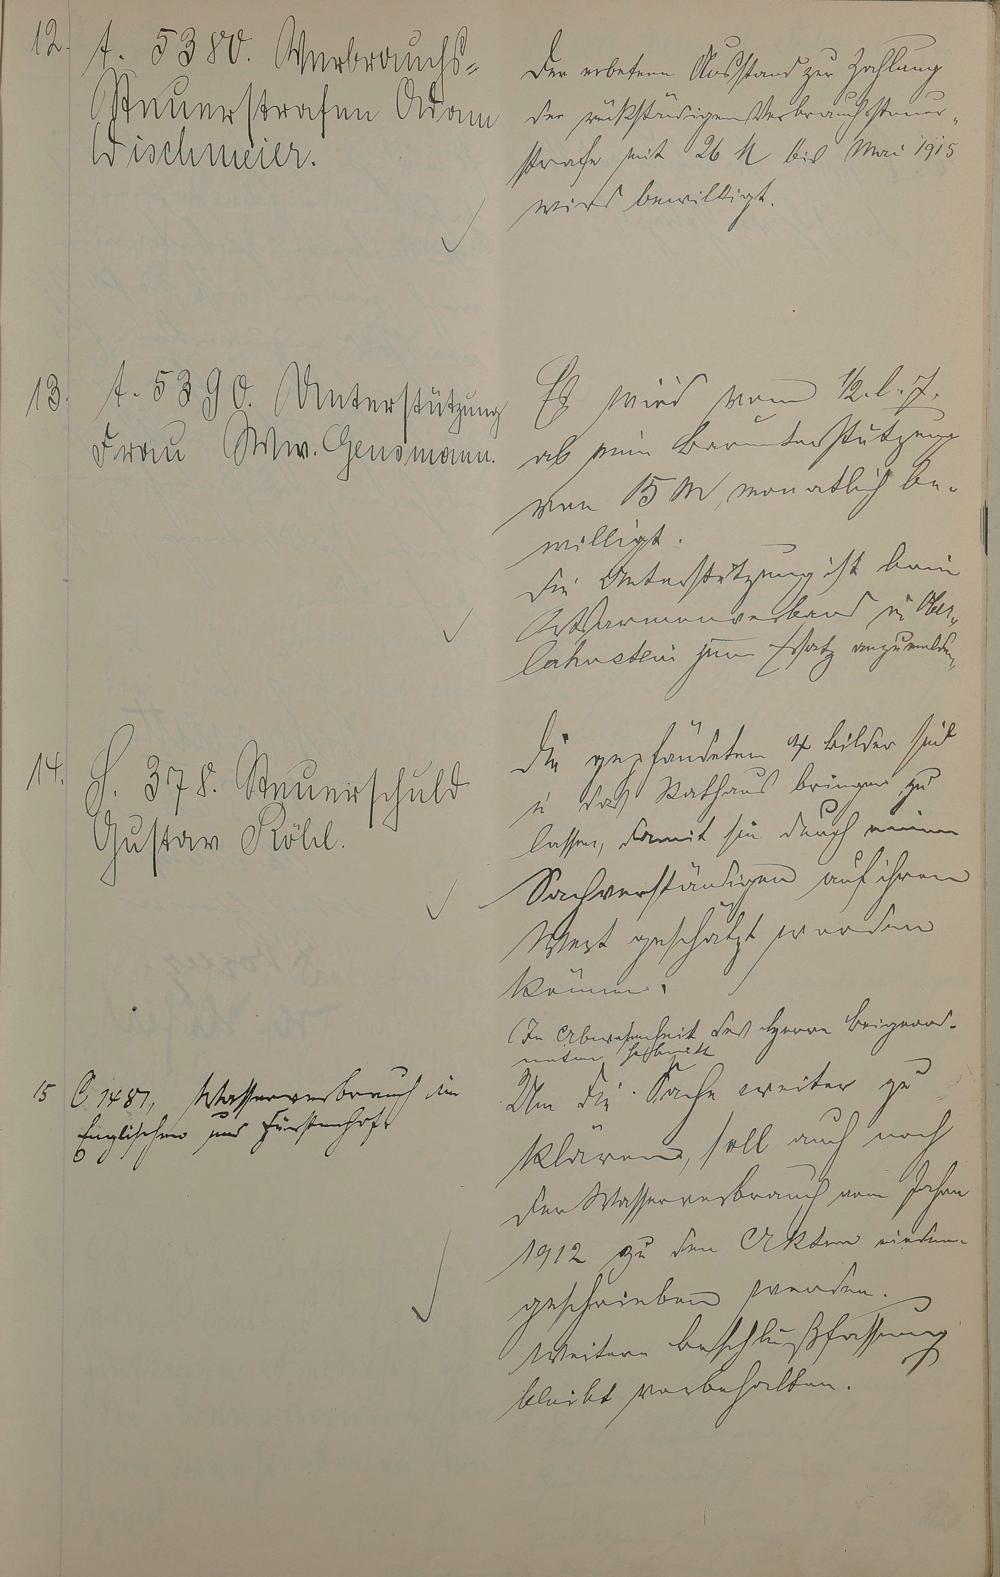 12. A. 5380. Verbrauchs-
Steuerstrafen Adam
Wischmeier.
Der erbetene Ausstand zur Zahlung
der rückständigen Verbrauchssteuer-
strafe mit 26 M bis Mai 1915
wird bewilligt.
13. A. 5390. Unterstützung
Frau Ww. Gensmann.
Es wird vom 1/2. l. J.
ab eine Barunterstützung
von 15 M, monatlich be-
willigt.
Die Unterstützung ist beim
Ortsarmenverband in Ober-
lahnstein zum Ersatz anzumelden.
14. S. 378. Steuerschuld
Gustav Röhl.
Die gepfändeten 4 Bilder sind
in das Rathaus bringen zu
lassen, damit sie durch einen
Sachverständigen auf ihren
Wert geschätzt werden
können.
(In Abwesenheit des Herrn Beigeord-
neten Schmidt
15 C. 1481, Wasserverbrauch im
Englischen und Fürstenhof.
Um die Sache weiter zu
klären, soll auch noch
der Wasserverbrauch vom Jahre
1912 zu den Akten nieder-
geschrieben werden.
Weitere Beschlußfassung
bleibt vorbehalten.